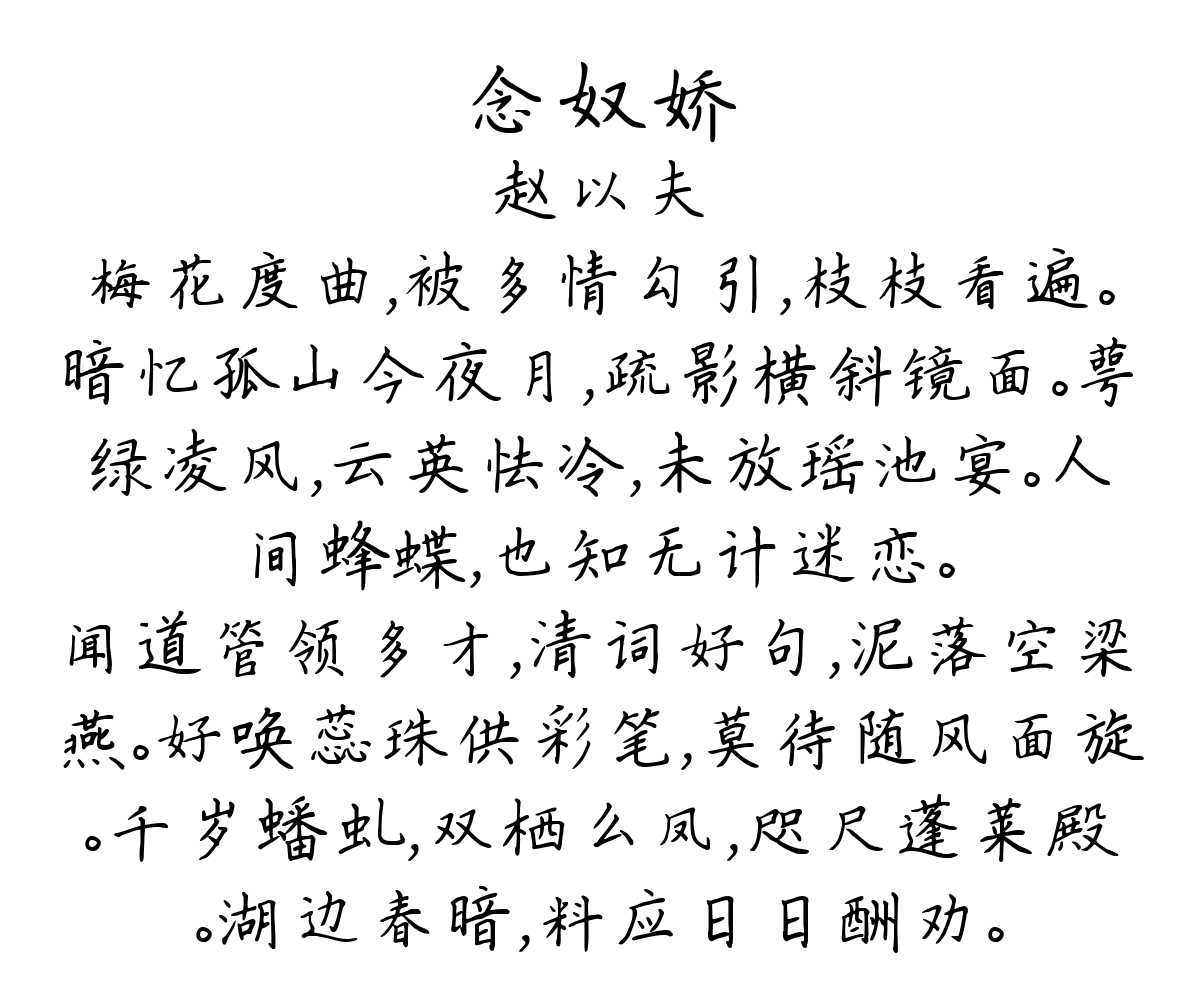 念奴娇
赵以夫
梅花度曲,被多情勾引,枝枝看遍。
暗忆孤山今夜月,疏影横斜镜面。萼
绿凌风,云英怯冷,未放瑶池宴。人
间蜂蝶,也知无计迷恋。
闻道管领多才,清词好句,泥落空梁
燕。好唤蕊珠供彩笔,莫待随风面旋
。千岁蟠虬,双栖么凤,咫尺蓬莱殿
。湖边春暗,料应日日酬劝。